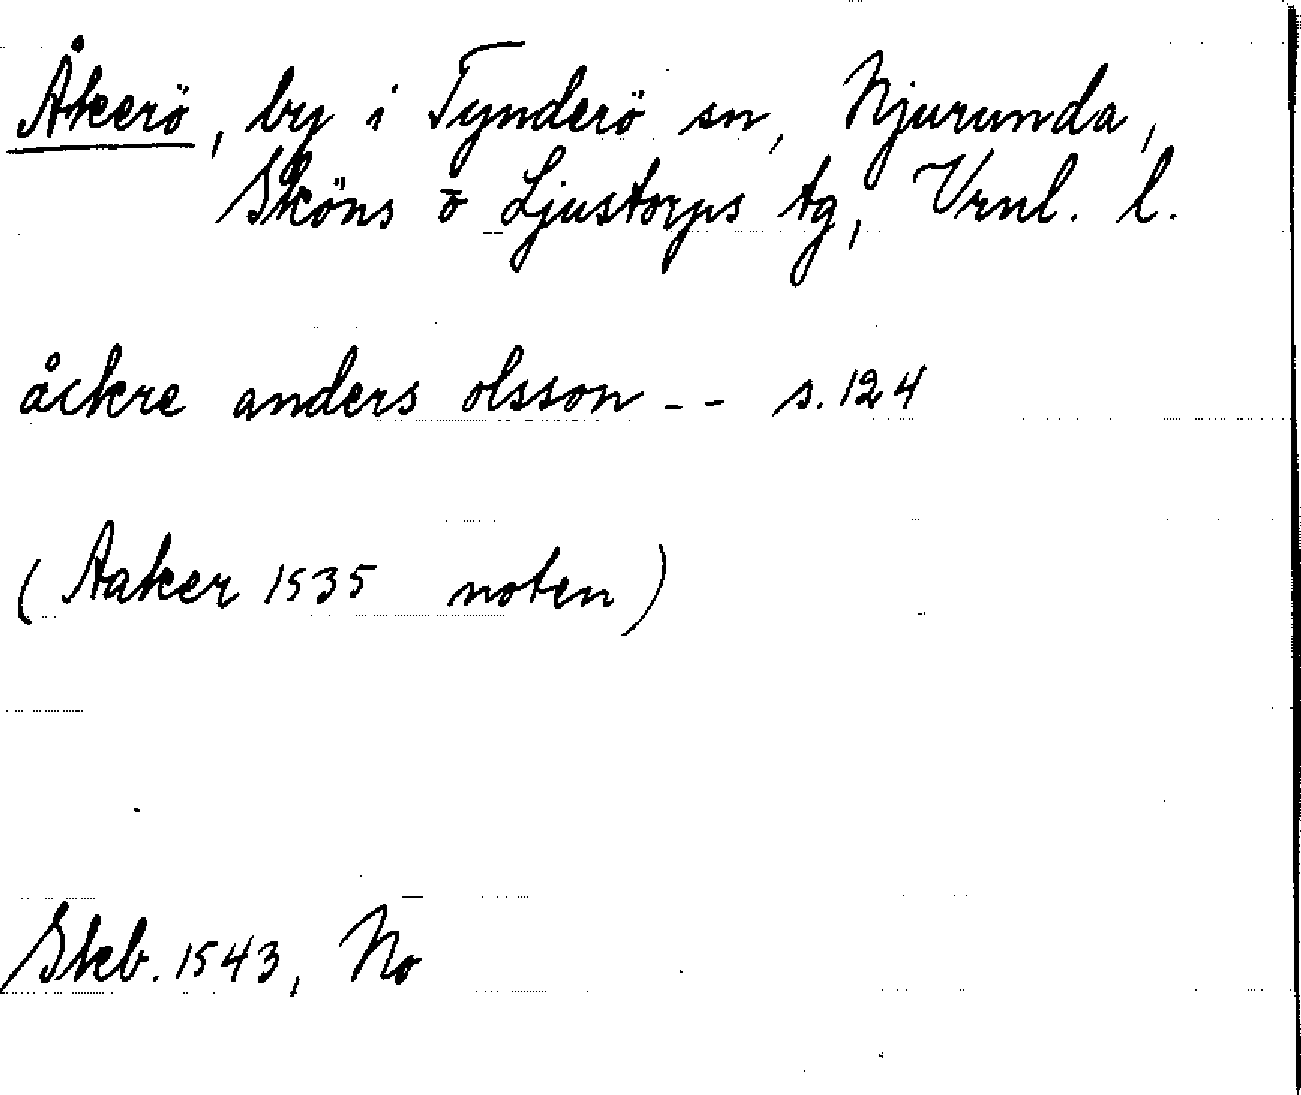 Åkerö, by i Tynderö sn, Njurunda,
Sköns o Ljustorps tg, Vrnl. l.
åckre anders olsson -- s. 124
(Aaker 1535 noten)
Skb. 1543, No